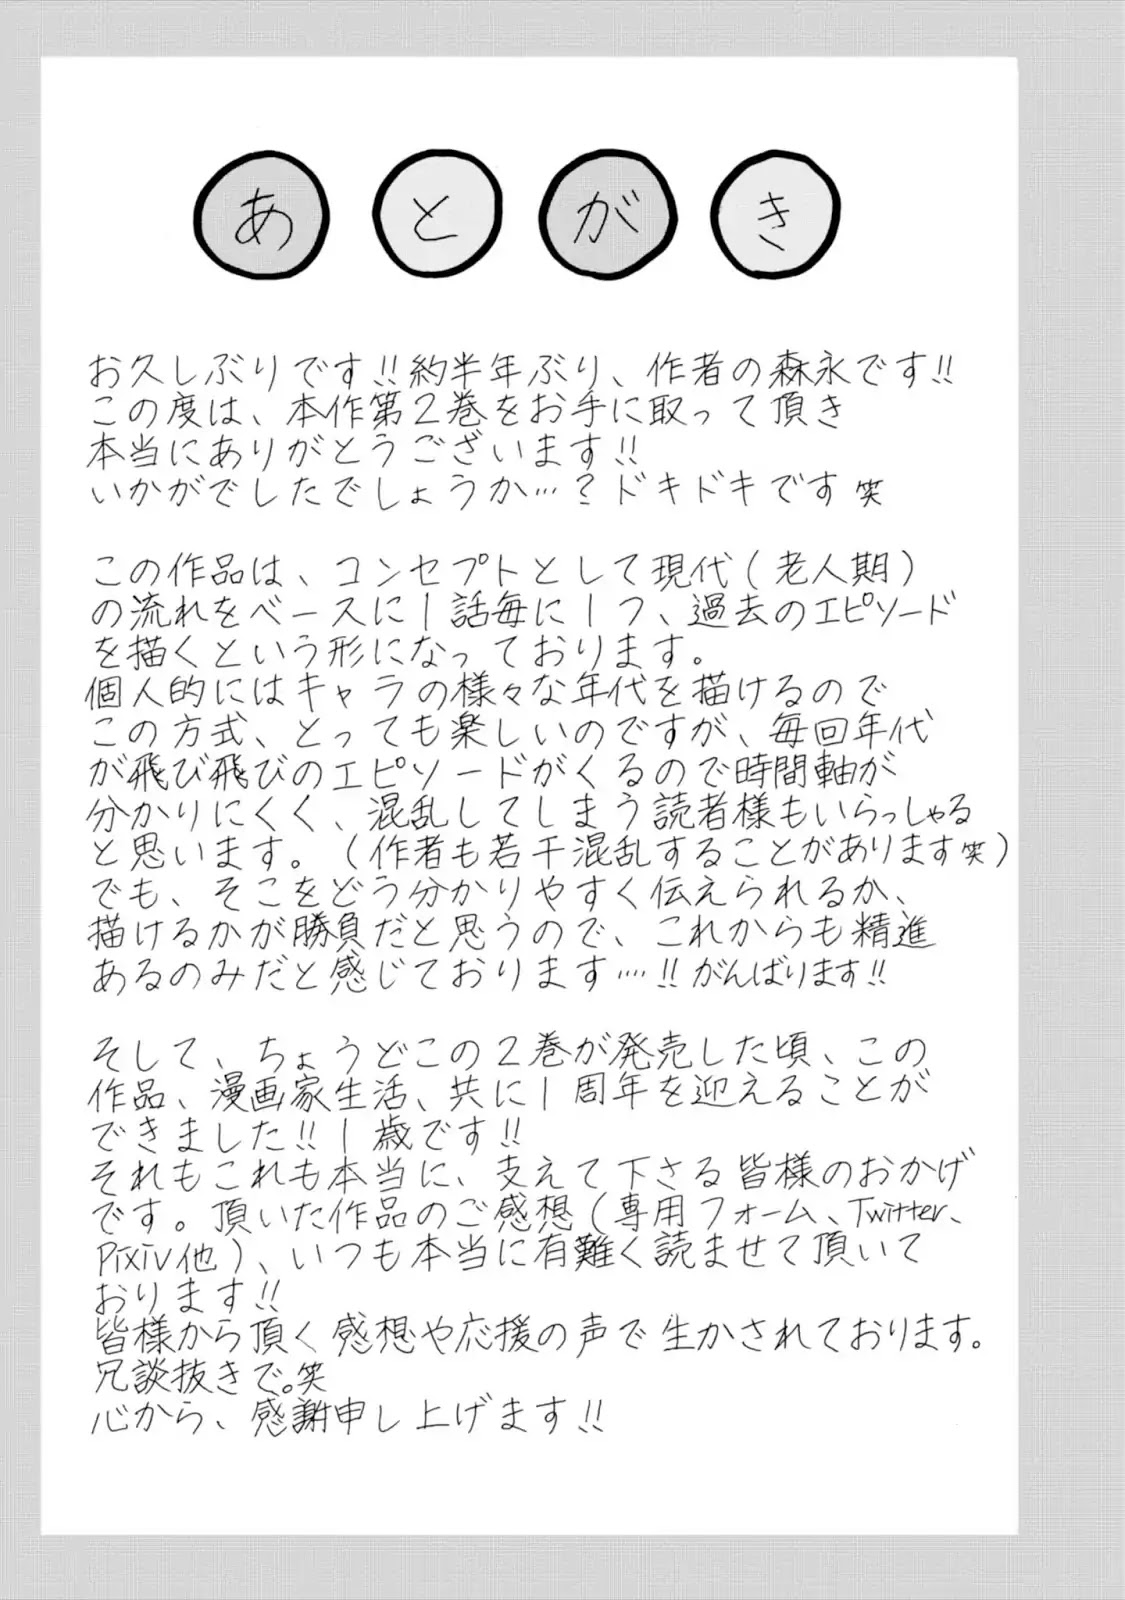 あとがき
お久しぶりです!!約半年ぶり、作者の森永です!!
この度は、本作第2巻をお手に取って頂き
本当にありがとうございます!!
いかがでしたでしょうか…?ドキドキです笑
この作品は、コンセプトとして現代(老人期)
の流れをベースに1話毎に1つ、過去のエピソード
を描くという形になっております。
個人的にはキャラの様々な年代を描けるので
この方式、とっても楽しいのですが、毎回年代
が飛び飛びのエピソードがくるので時間軸が
分かりにくく、混乱してしまう読者様もいらっしゃる
と思います。(作者も若干混乱することがあります笑)
でも、そこをどう分かりやすく伝えられるか、
描けるかが勝負だと思うので、これからも精進
あるのみだと感じております….!!がんばります!!
そして、ちょうどこの2巻が発売した頃、この
作品、漫画家生活、共に1周年を迎えることが
できました!!1歳です!!
それもこれも本当に、支えて下さる皆様のおかげ
です。頂いた作品のご感想(専用フォーム、Twitter、
Pixiv他)、いつも本当に有難く読ませて頂いて
おります!!
皆様から頂く感想や応援の声で生かされております。
冗談抜きで。笑
心から、感謝申し上げます!!